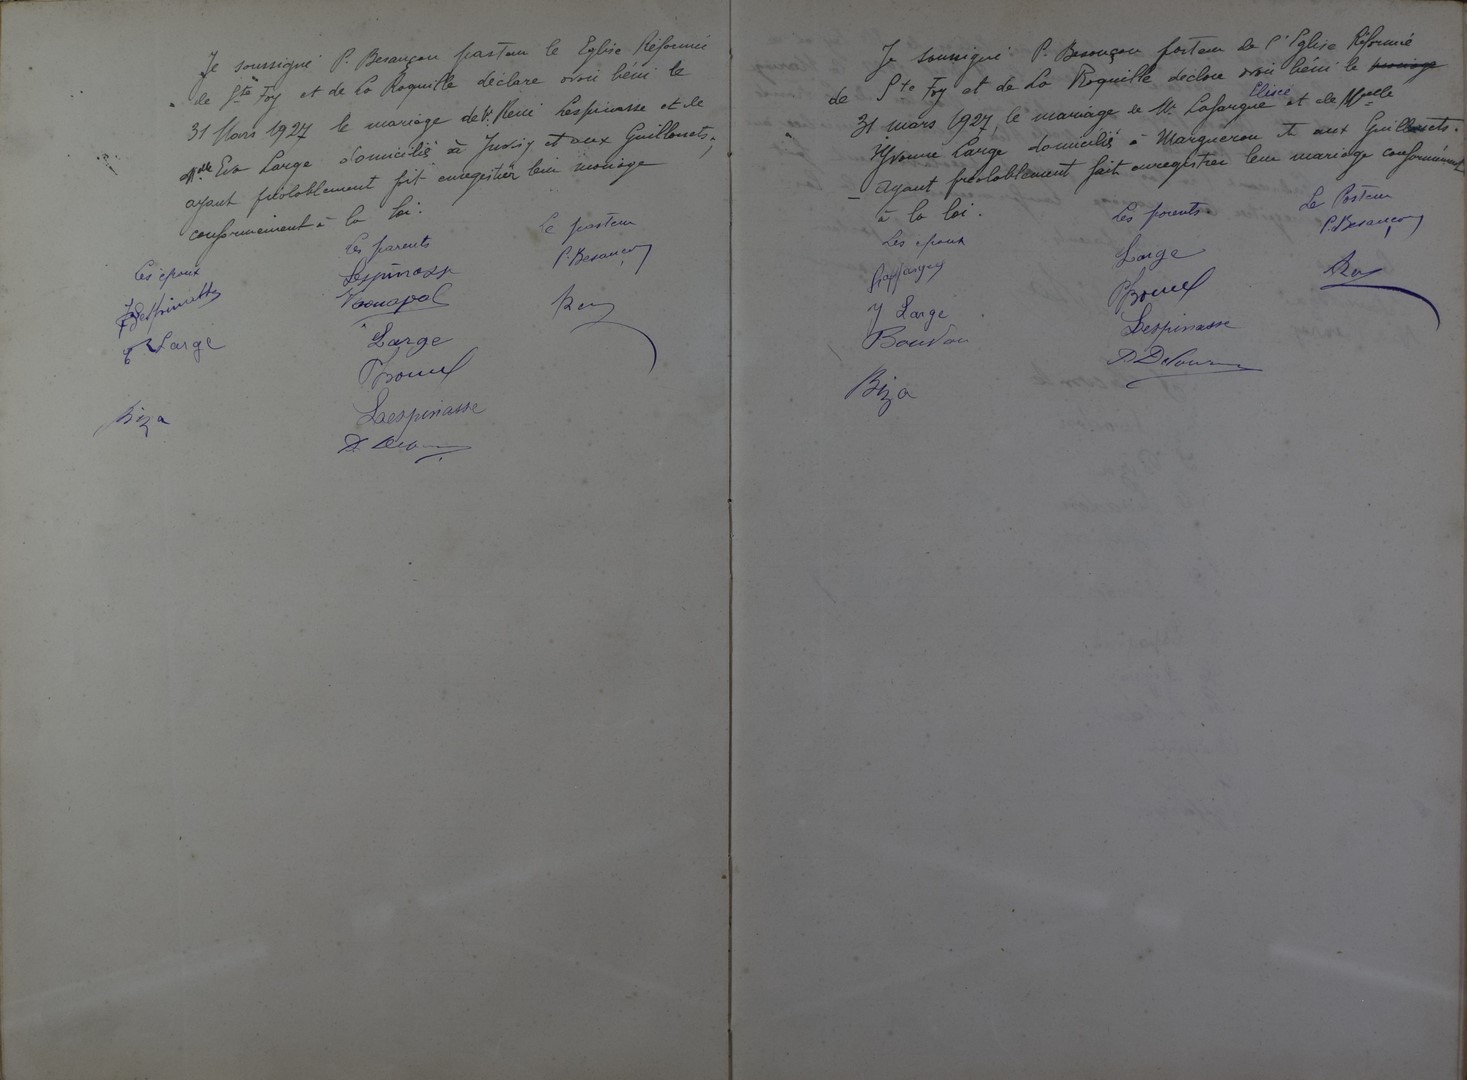 Je soussigné P. Besançon pasteur de Eglise Réformée
de Ste Foy et de La Roquille déclare avoir béni le
31 Mars 1927 le mariage de Mr. René Lespinasse et de
Melle Eva Large domiciliés à et aux Guillonets,
ayant préalablement fait enregistrer leur mariage
conformément à la loi.
Les époux
Les parents
Le pasteur
Lespinasse
P. Besançon
Large
Rey
Large
Lespinasse
Biza
Je soussigné P. Besançon pasteur de l'Eglise Réformée
de Ste Foy et de La Roquille déclare avoir béni le mariage
31 mars 1927, le mariage de Mr. Lafargue Elisée et de Melle
Yvonne Large domiciliés à Margueron et aux Guillonets.
Ayant préalablement fait enregistrer leur mariage conformément
à la loi.
Les époux
Les parents
Le Pasteur
P. Besançon
Large
Rey
Y Large
Lespinasse
Biza